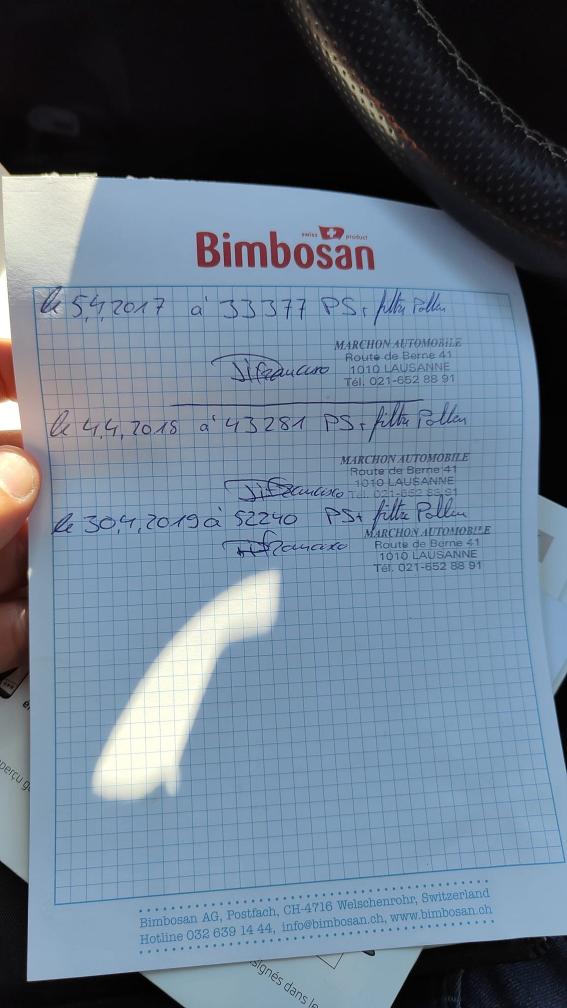 swiss product
Bimbosan
le 5,4,2017 à 33377 PS+ filtre Pollen
MARCHON AUTOMOBILE
Route de Berne 41
1010 LAUSANNE
Tél. 021-652 88 91
le 4,4,2018 à 43281 PS+ filtre Pollen
MARCHON AUTOMOBILE
Route de Berne 41
1010 LAUSANNE
Tél. 021-652 88 91
le 30,4,2019 à 52240 PS+ filtre Pollen
MARCHON AUTOMOBILE
Route de Berne 41
1010 LAUSANNE
Tél. 021-652 88 91
Bimbosan AG, Postfach, CH-4716 Welschenrohr, Switzerland
Hotline 032 639 14 44, info@bimbosan.ch, www.bimbosan.ch